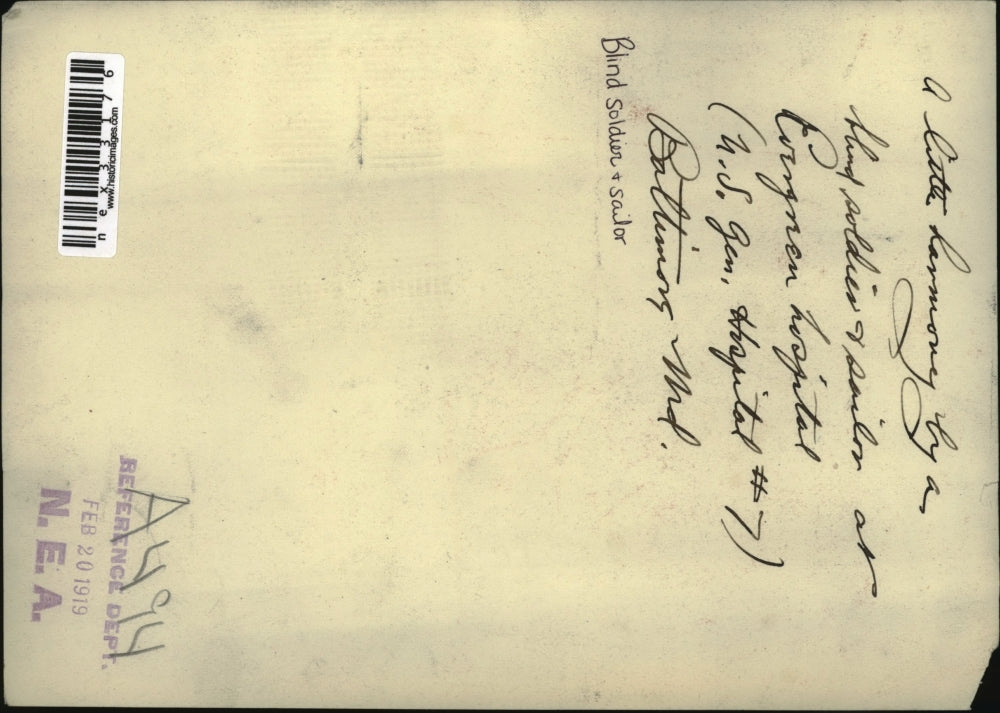 A little harmony by a
blind soldier & sailor at
Evergreen hospital
(U.S. Gen. Hospital #7)
Baltimore, Md.
Blind soldier + sailor
A494
REFERENCE DEPT.
FEB 20 1919
N. E. A.
www.historicimages.com
nex33176